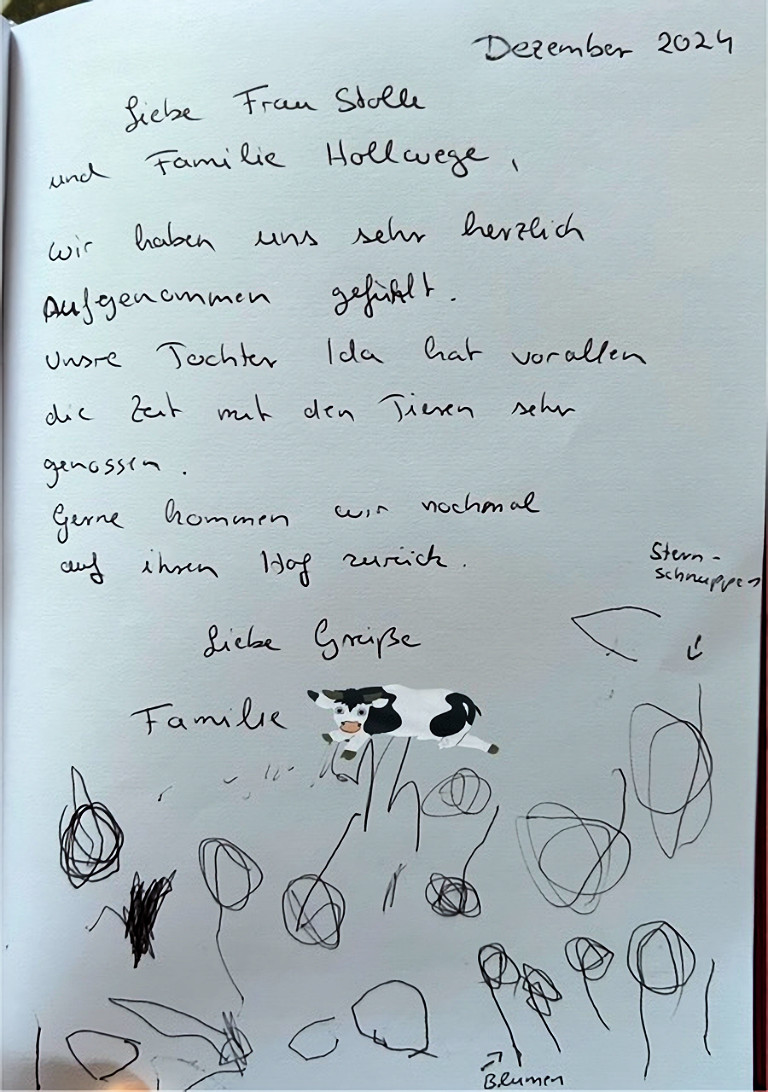 Dezember 2024
Liebe Frau Stolle
und Familie Hollwege,
wir haben uns sehr herzlich
Aufgenommen gefühlt.
unsre Tochter Ida hat vorallen
die Zeit mit den Tieren sehr
genossen.
Gerne kommen wir nochmal
auf ihren Hof zurück.
Stern-
schnuppen
Liebe Grüße
Familie
Blumen